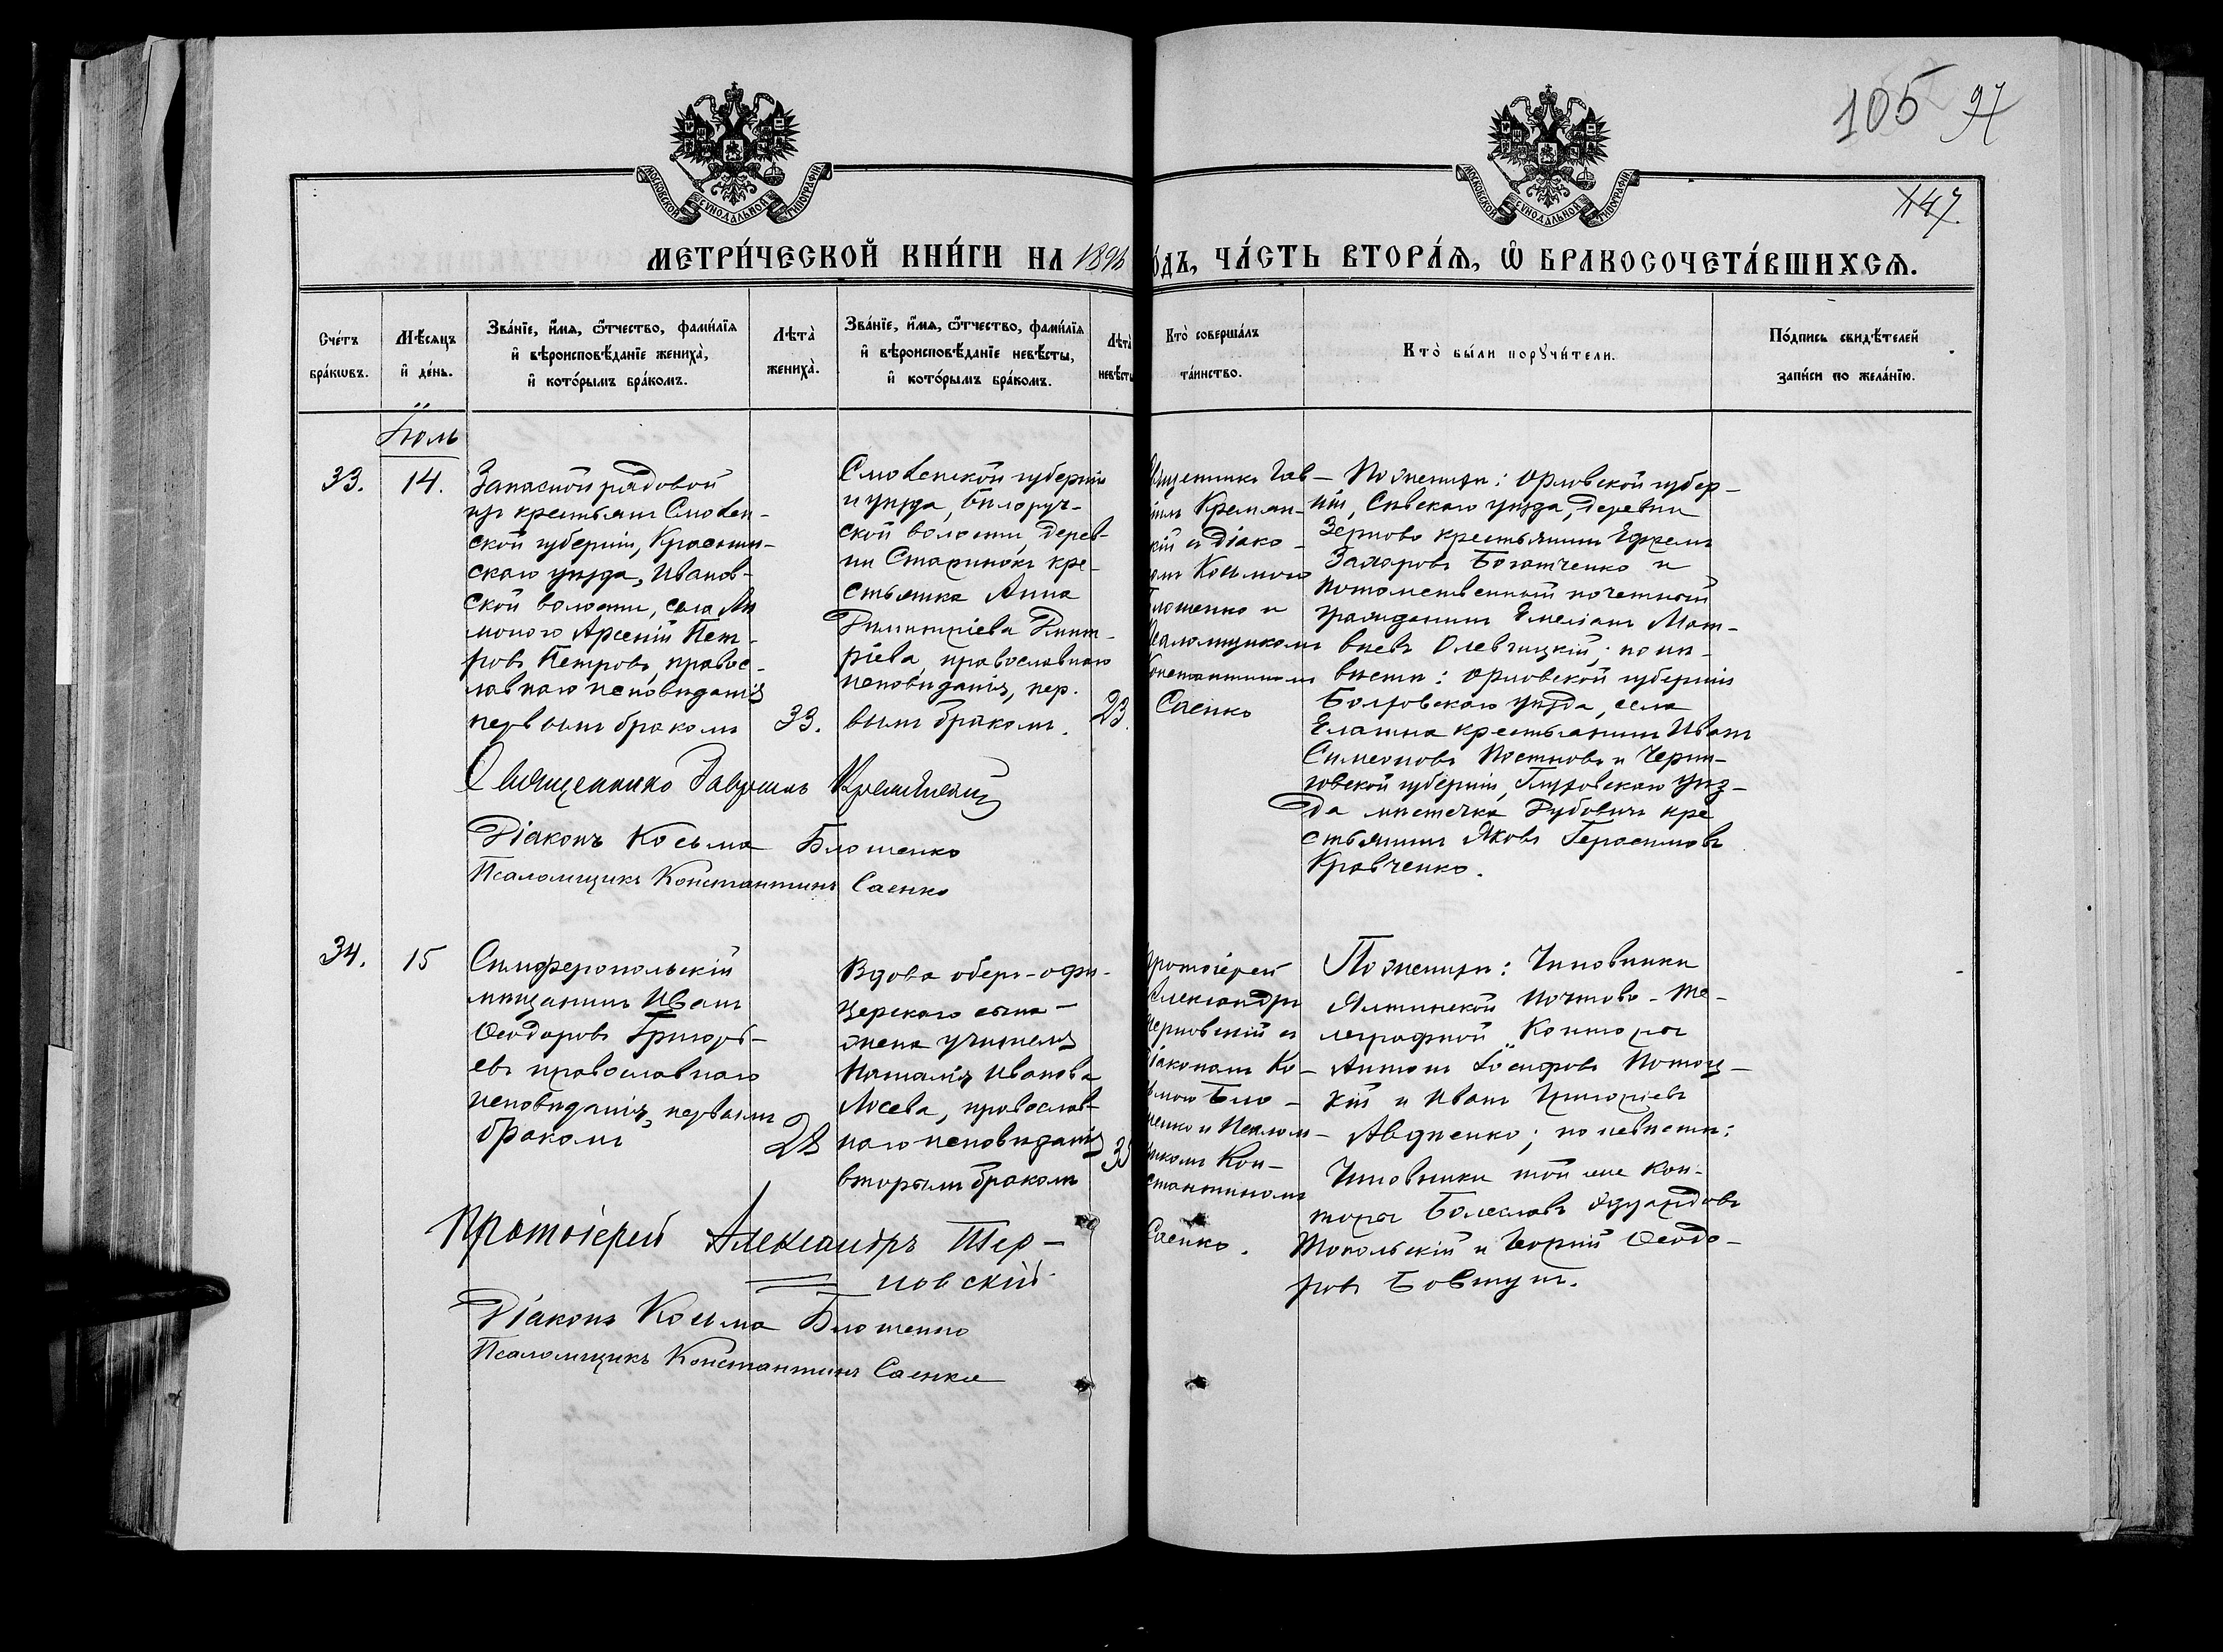 105 97
147
МОСКОВСКОЙ СѴНОДАЛЬНОЙ ТИПОГРАФІИ
МОСКОВСКОЙ СѴНОДАЛЬНОЙ ТИПОГРАФІИ
МЕТРИ́ЧЕСКОЙ КНИ́ГИ НА 1896
ОДЪ, ЧА́СТЬ ВТОРА́Я, Ѡ БРАКОСОЧЕТА́ВШИХСЯ.
Сче́тъ
бра́кѡвъ.
Мѣ́сяцъ
и де́нь.
Зва́нїе, и́мѧ, ѻ҆́тчество, фами́лїѧ
и вѣроисповѣ́данїе жениха̀,
и кото́рымъ бра́комъ.
Лѣта̀
жениха̀.
Зва́нїе, и́мѧ, ѻ҆́тчество, фами́лїѧ
и вѣроисповѣ́данїе невѣ́сты,
и кото́рымъ бра́комъ.
Лѣта̀
невѣсты
Кто̀ соверша́лъ
та́инство.
Кто̀ бы́ли порꙋчи́тели.
По́дпись свидѣ́телей
за́писи по жела́нїю.
Іюль
33.
14.
Запасной рядовой
изъ крестьянъ Смолен-
ской губерніи, Краснин-
скаго уѣзда, Иванов-
ской волости, села
Арсеній Пет-
ровъ Петровъ, правос-
лавнаго исповѣданія
первымъ бракомъ
33.
Смоленской губерніи
и уѣзда, Бѣлоруч-
ской волости, дерев-
ни Старинокъ кре-
стьянка Анна
Димитріева Димит-
ріева, православнаго
исповѣданія, пер-
вымъ бракомъ.
23.
Священникъ Гав-
кій и Діако-
Косьмою
Блошенко и
Псаломщикомъ
Константиномъ
Саенко
По женихѣ: Орловской губер-
ніи, Сѣвскаго уѣзда, деревни
Зерново крестьянинъ Ефремъ
Захаровъ Богатченко и
потомственный почетный
гражданинъ Емеліанъ Мат-
вѣевъ Олевчицкій; по не-
вѣстѣ: Орловской губерніи
Болховскаго уѣзда, села
Елагина крестьянинъ Иванъ
Симеоновъ Постновъ и Черни-
говской губерніи, Глуховскаго уѣз-
да мѣстечка Дубовичъ кре
стьянинъ Яковъ Герасимовъ
Кравченко.
Священникъ Гавріилъ
Діаконъ Косьма Блошенко
Псаломщикъ Константинъ Саенко
34.
15
Симферопольскій
мѣщанинъ Иванъ
Ѳеодоровъ Григорь-
евъ православнаго
исповѣданія, первымъ
бракомъ
28
Вдова оберъ-офи-
церскаго сына -
жена учителя
Наталія Иванова
Лосева, православ-
наго исповѣданія
вторымъ бракомъ
35
Протоіерей
Александръ
Терновскій съ
Діакономъ Ко-
сьмою Бло-
шенко и Псалом-
щикомъ Кон-
стантиномъ
Саенко.
По женихѣ: Чиновники
Ялтинской Почтово-Те-
леграфной Конторы
Антонъ Іосифовъ Потоц-
кій и Иванъ Григоріевъ
Авдѣенко; по невѣстѣ:
Чиновники той же Кон-
торы Болеславъ Эдуардовъ
Топольскій и Георгій Ѳеодо-
ровъ Бовтутъ.
Протоіерей Александръ Тер-
новскій
Діаконъ Косьма Блошенко
Псаломщикъ Константинъ Саенко